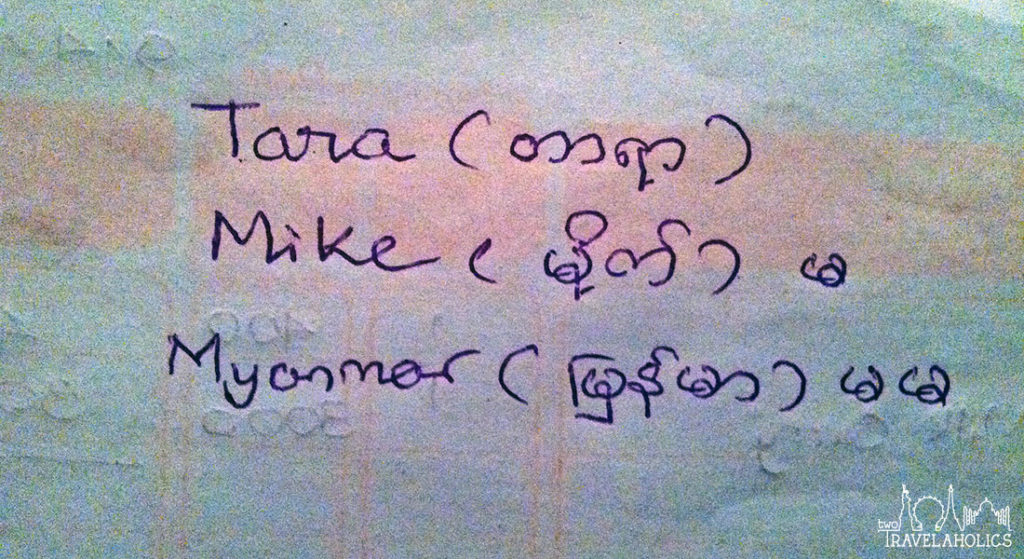 Tara (တာရာ)
Mike (မိုက်) မ
Myanmar (မြန်မာ) မ မ
two
TRAVELAHOLICS